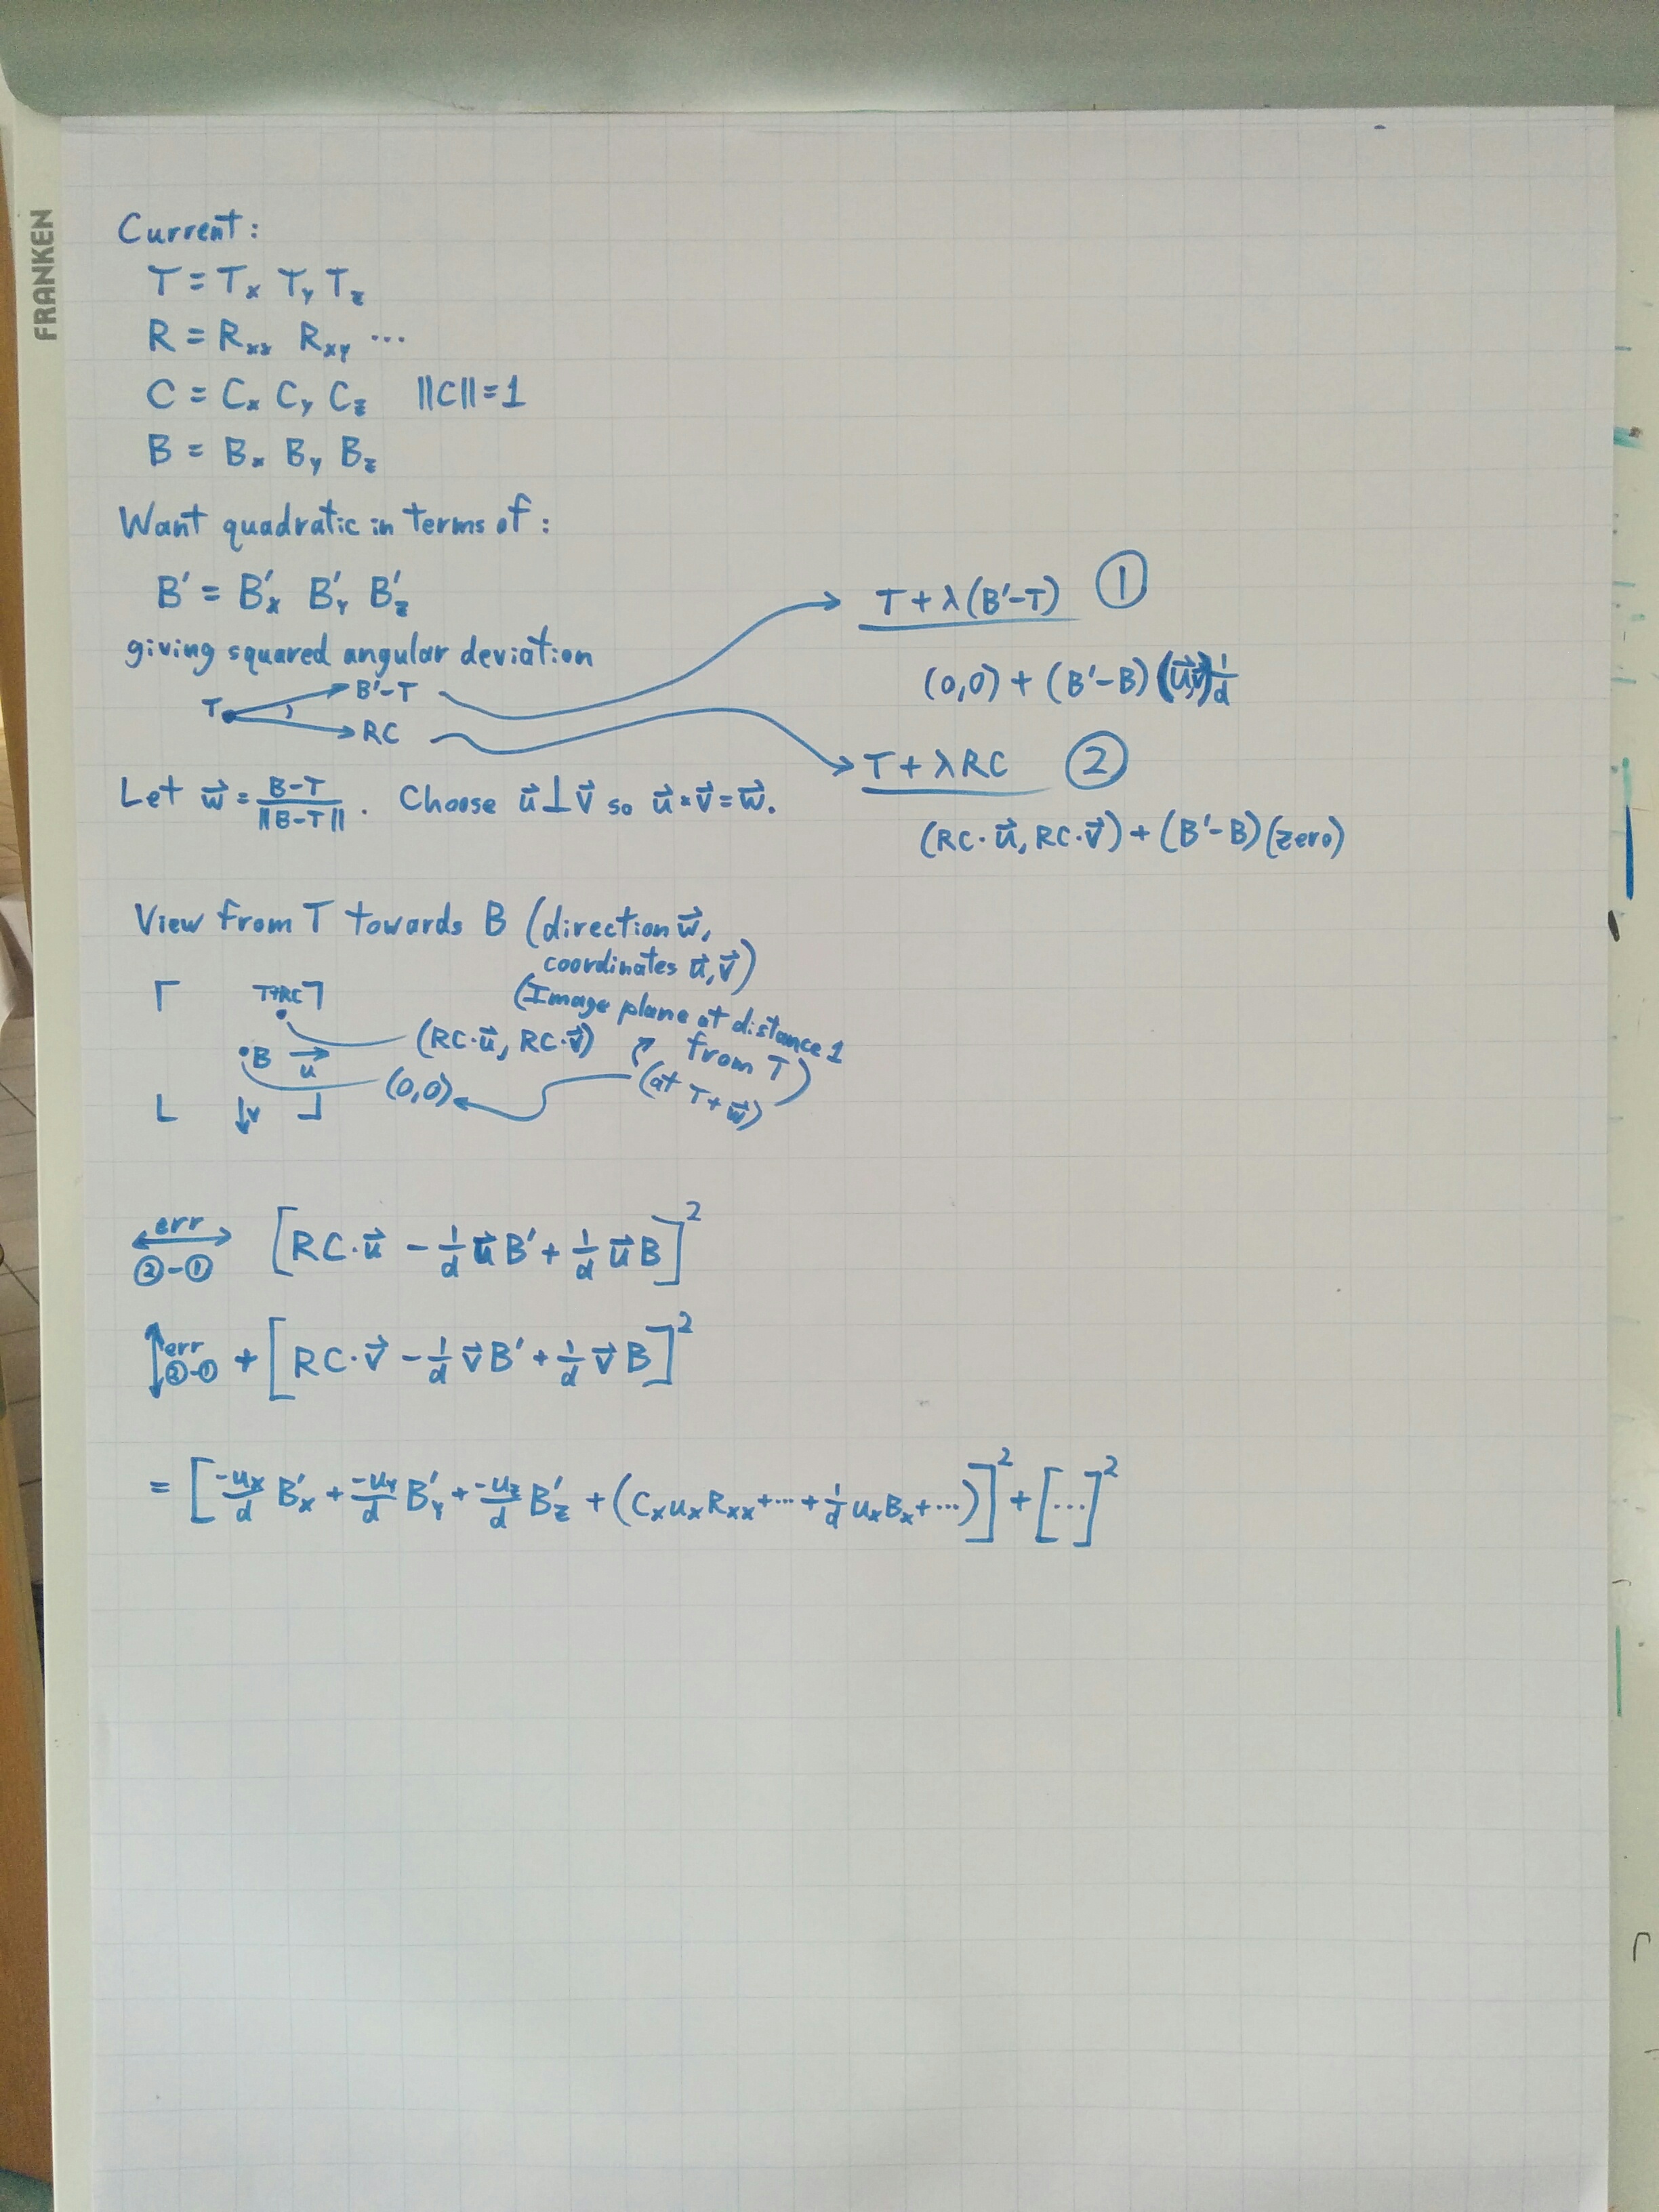 FRANKEN
Current:
T = Tx Ty Tz
R = Rxx Rxy ...
C = Cx Cy Cz ||C|| = 1
B = Bx By Bz
Want quadratic in terms of:
B' = B'x B'y B'z
giving squared angular deviation
T B'-T
RC
T + λ(B'-T) ①
(0,0) + (B'-B)(u⃗,v⃗) 1/d
T + λRC ②
(RC·u⃗, RC·v⃗) + (B'-B)(zero)
Let w⃗ = B-T / ||B-T|| . Choose u⃗ ⊥ v⃗ so u⃗ × v⃗ = w⃗.
View from T towards B (direction w⃗,
coordinates u⃗, v⃗)
(Image plane at distance 1
from T)
(at T + w⃗)
T+RC
(RC·u⃗, RC·v⃗)
B u⃗
(0,0)
v
err ②-① [RC·u⃗ - 1/d u⃗ B' + 1/d u⃗ B]²
err ②-① + [RC·v⃗ - 1/d v⃗ B' + 1/d v⃗ B]²
= [-ux/d B'x + -uy/d B'y + -uz/d B'z + (Cx ux Rxx + ... + 1/d ux Bx + ...)]² + [...]²